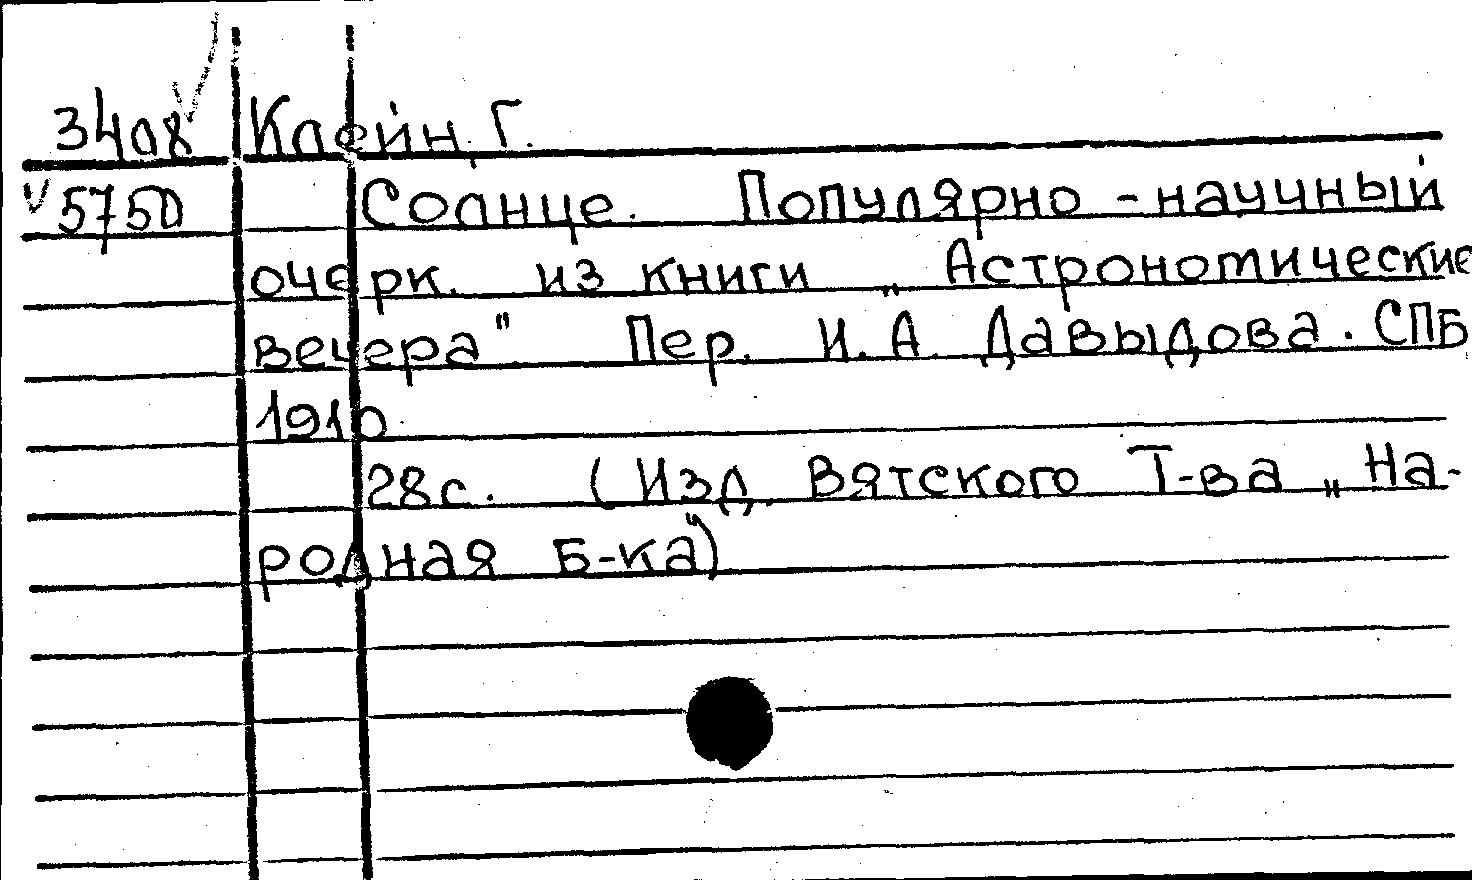 3408 Клейн, Г.
5750 Солнце. Популярно-научный
очерк. из книги „Астрономические
вечера" Пер. И. А. Давыдова. СПБ
1910.
28с. (Изд. Вятского Т-ва „На-
родная Б-ка")